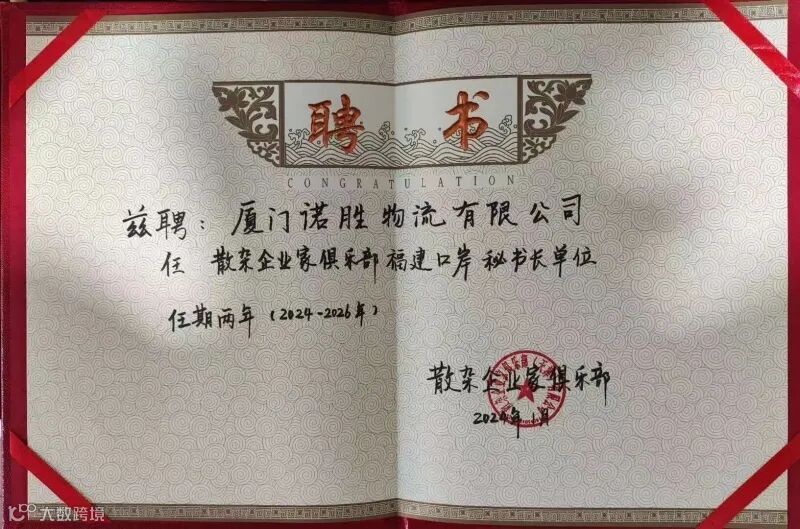 聘书
CONGRATULATION
兹聘：厦门诺胜物流有限公司
任 散杂企业家俱乐部福建口岸秘书长单位
任期两年（2024-2026年）
散杂企业家俱乐部
2024年1月
大数跨境